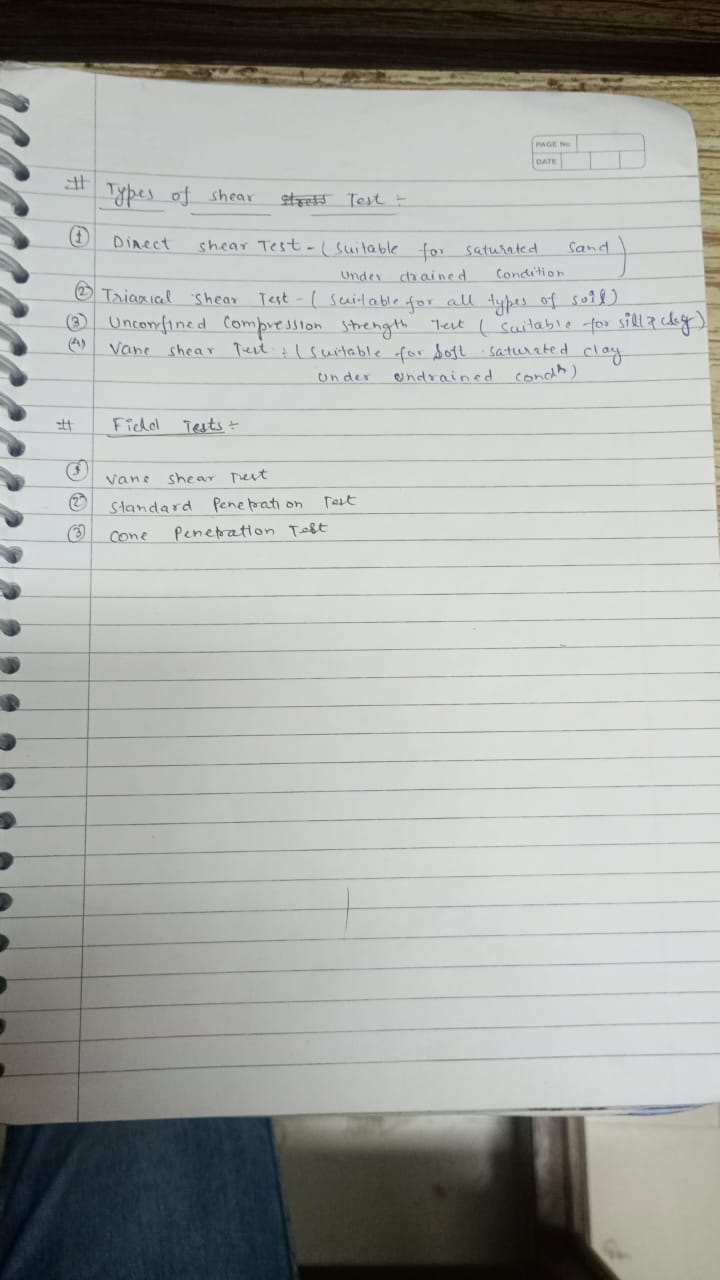 PAGE No
DATE
# Types of shear stress Test :-
① Direct shear Test - ( Suitable for saturated sand
under drained condition )
② Triaxial shear Test - ( Suitable for all types of soil )
③ Unconfined Compression strength Test ( Suitable for silt & clay )
(4) Vane shear Test : ( Suitable for Soft saturated clay
under undrained condn )
# Field Tests :-
① Vane shear Test
② Standard Penetration Test
③ Cone Penetration Test